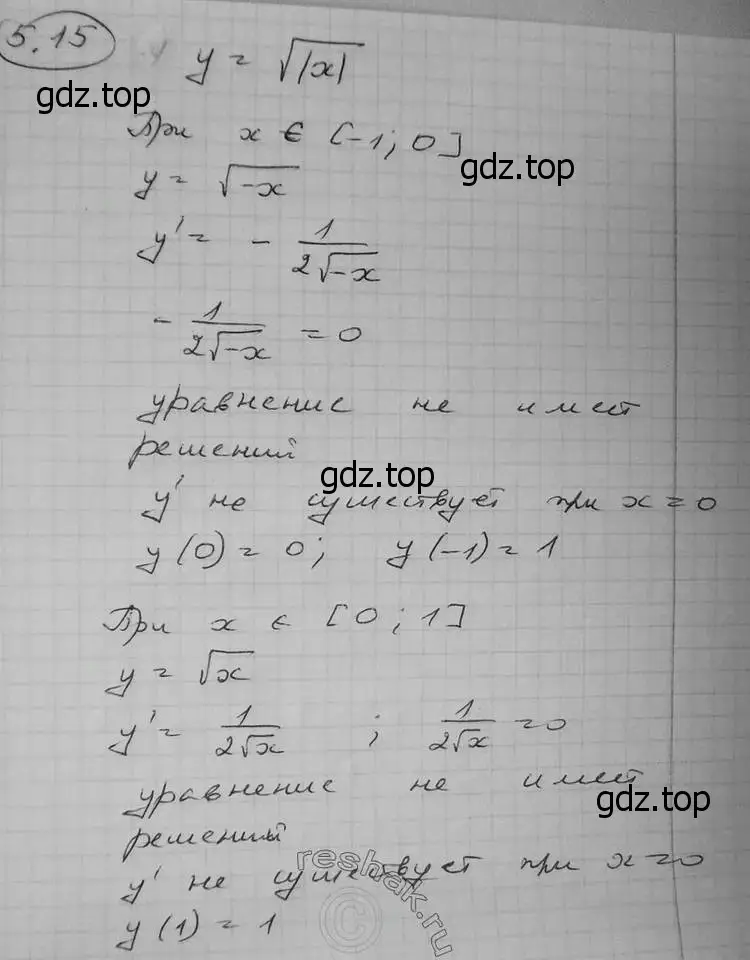 5.15
y = √|x|
gdz.top
При x ∈ [-1; 0]
gdz.top
y = √-x
y' = - 1/(2√-x)
- 1/(2√-x) = 0
уравнение не имеет
решений
gdz.top
y' не существует при x = 0
y(0) = 0; y(-1) = 1
При x ∈ [0; 1]
y = √x
y' = 1/(2√x) ; 1/(2√x) = 0
уравнение не имеет
gdz.top
решений
reshak.ru
©
y' не существует при x = 0
y(1) = 1